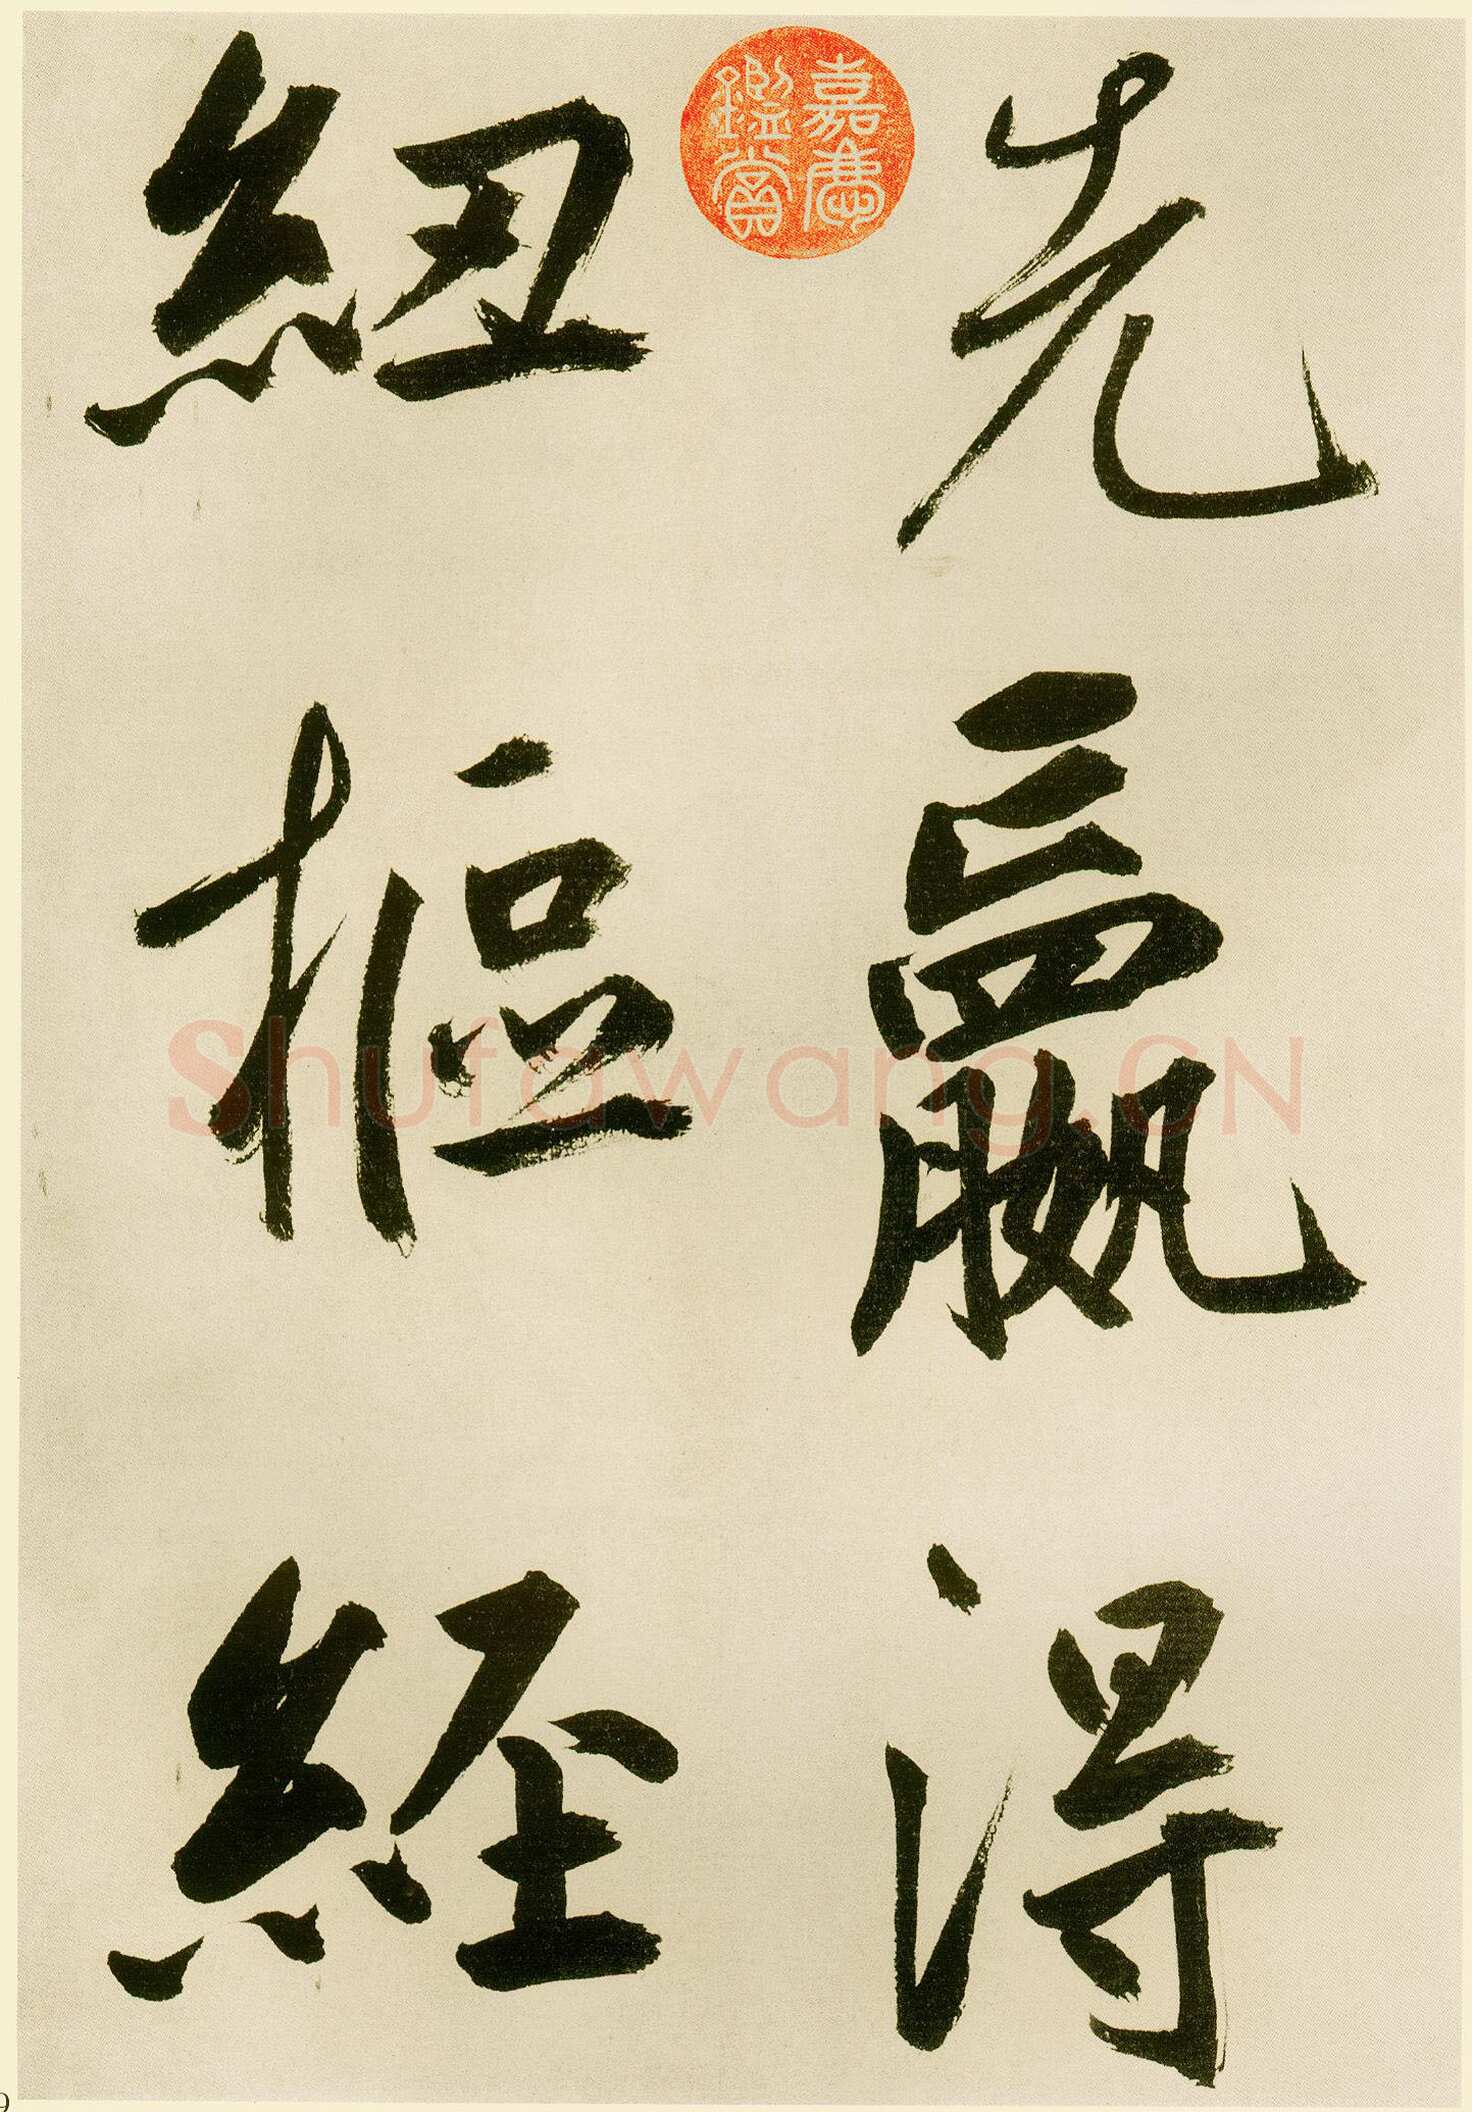 先嬴得
紐樞經
嘉慶
鑑賞
Shufawang.CN
9